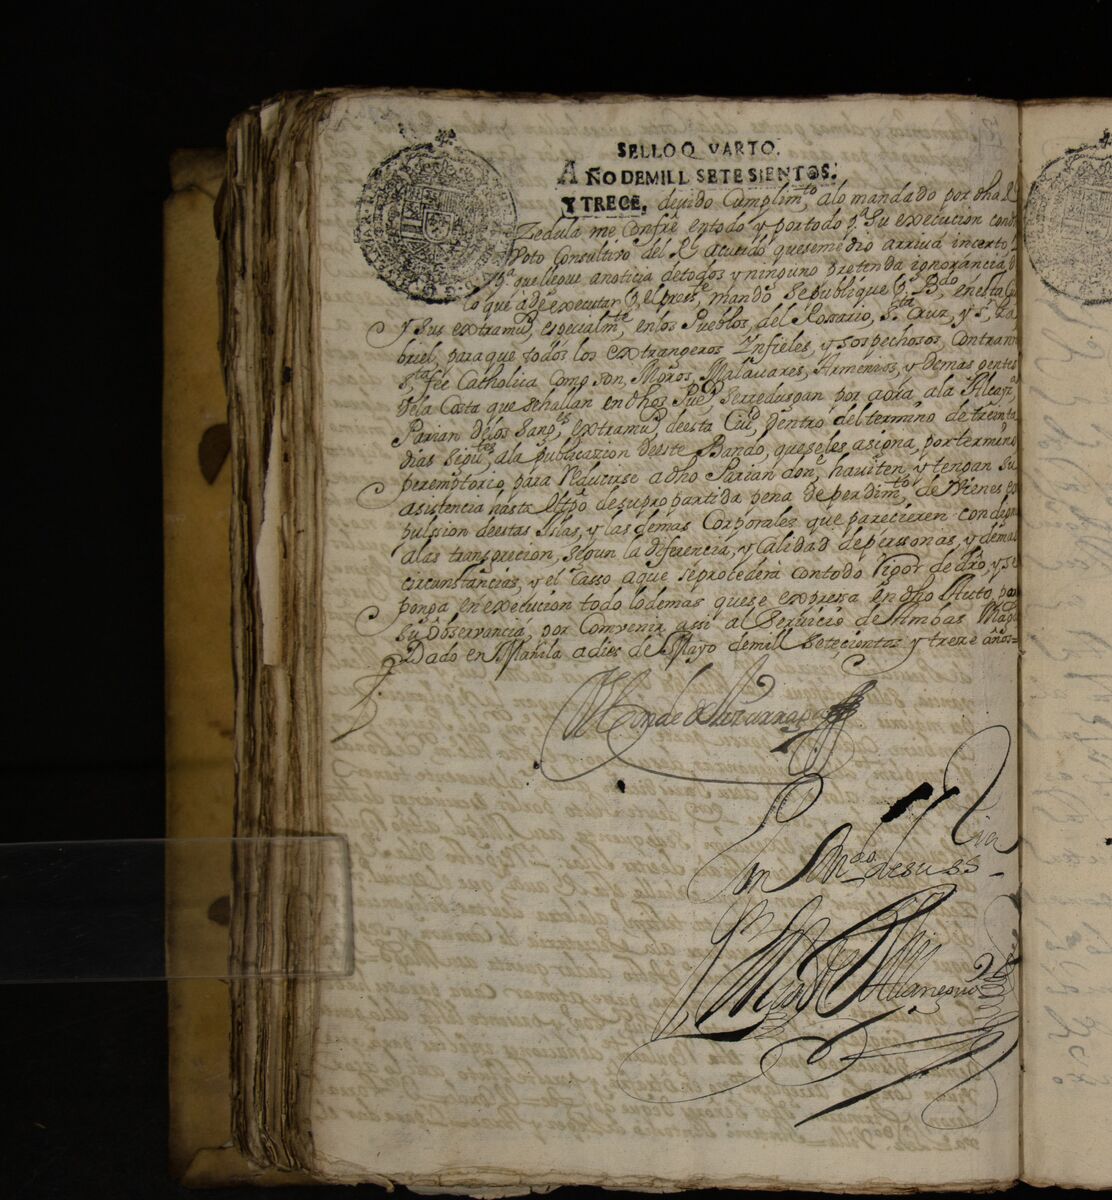 SELLO QVARTO.
AÑO DE MILL SETESIENTOS.
Y TRECE,
devido Cumplim.to alo mandado por dha R.l
Zedula me Confr.e en todo y por todo p.a su execucion con el
Voto Consultivo del R.l acuerdo que se me dio arriva incerto
p.a que llegue a noticia de todos y ninguno pretenda ignorancia d
lo que a de executar p.r el pres.te mando se publique p.r B.do en esta Ciu
y sus extramu.s especialm.te en los Pueblos, del Rossario, S.ta Cruz, y S.n Ga
briel, para que todos los extrangeros Infieles, y sospechosos, Contra n
s.ta fee Catholica como son, Moros, Malavares, Armenios, y demas gentes
de la Costa que se hallan en dhos Pue.s se rredusgan por aora, ala Alcay.a
Parian delos Sang.es extramu.s de esta Ciu.d dentro del termino de treinta
dias sigu.tes ala publicazion de este Bando, que se les asigna, por termino
peremptorio para Reducirse a dho Parian don.e haviten, y tengan su
asistencia hasta el tpo de su propartida pena de perdim.to de Vienes ex
pulsion de estas Islas, y las demas Corporales que parecieren condign
alas transgrecion, segun la diferencia, y Calidad de perssonas, y demas
circunstancias, y el Casso a que se procederà con todo Vigor de dro, y se
ponga en execucion todo lo demas que se expresa en dho Auto, para
su observancia, por Convenir assi al Servicio de Ambas Mag.s
Dado en Manila a dies de Mayo de mill setecientos y treze años=
El Conde de Lizarraga
Por Man.do de su S.S